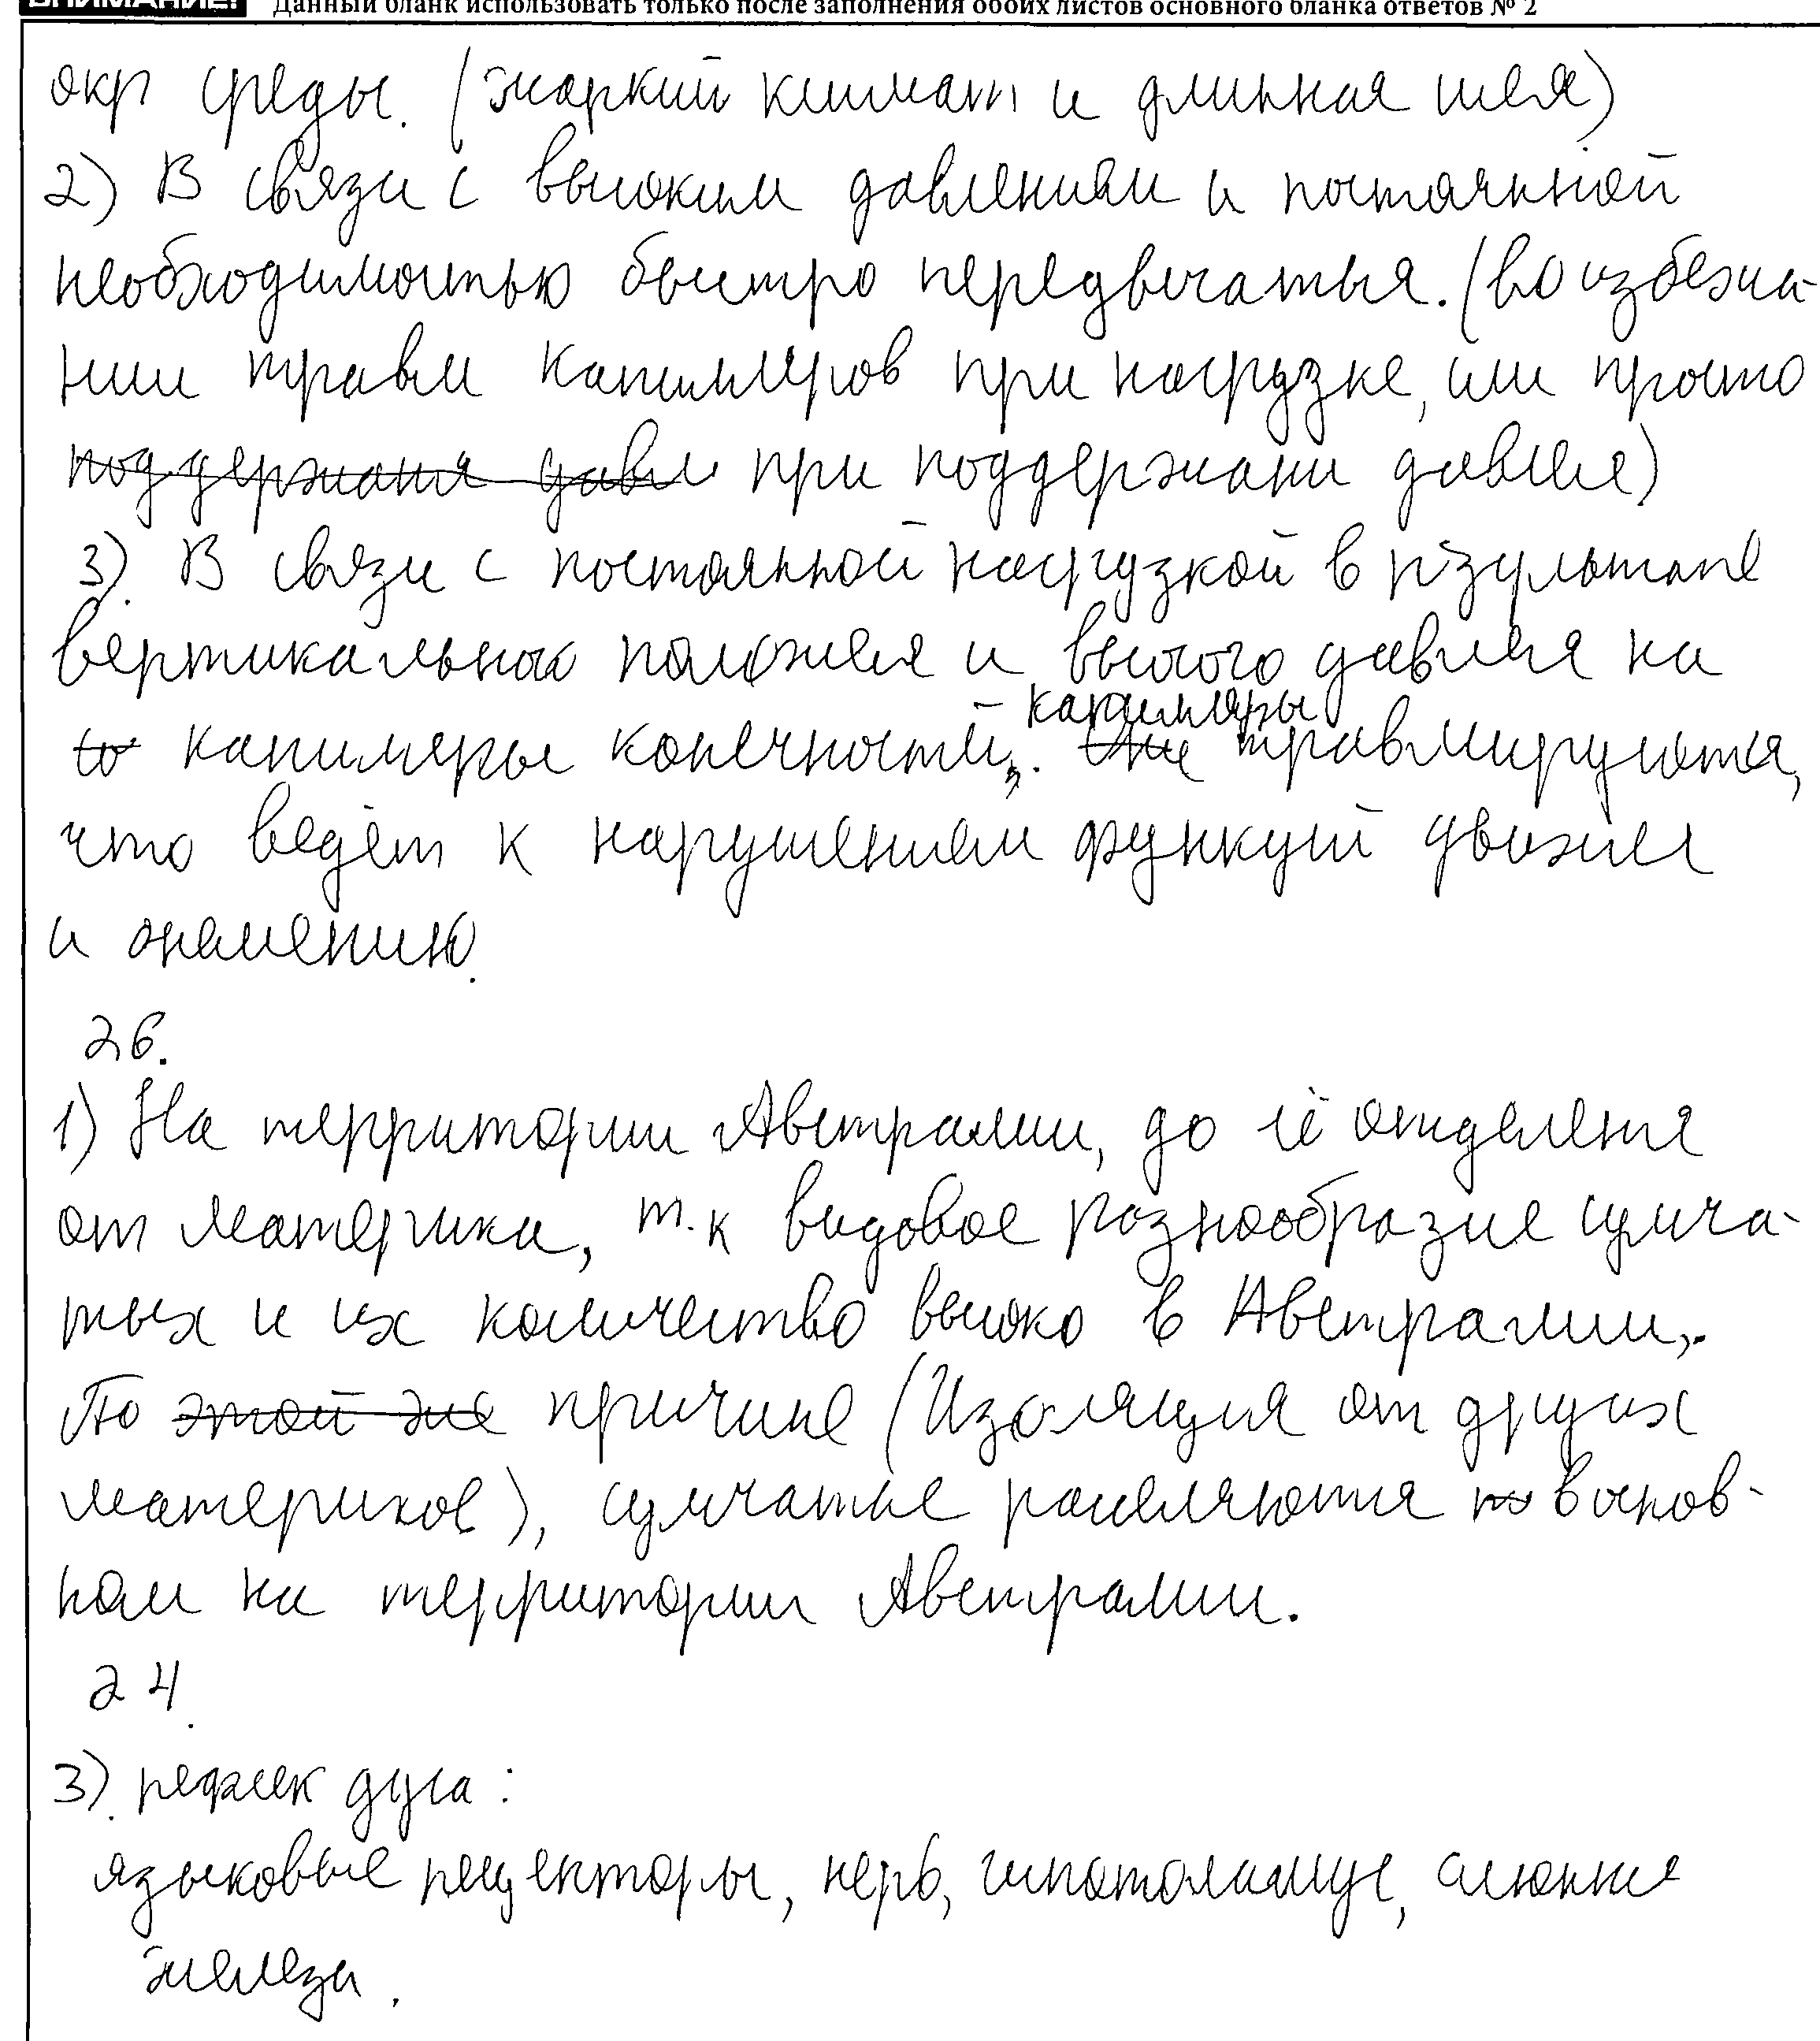 ВНИМАНИЕ! Данный бланк использовать только после заполнения обоих листов основного бланка ответов № 2
окр среды. (жаркий климат и длинная шея)
2) В связи с высоким давлением и постоянной
необходимостью быстро передвигаться. (во избежа-
нии травм капилляров при нагрузке, или просто
поддержаня давл при поддержани давлея)
3). В связи с постоянной нагрузкой в результате
вертикальног положея и высого давлея на
то капиляры конечностей, капилляры травмируются,
что ведёт к нарушениям функций движея
и онемению.
26.
1) На территории Австралии, до её отделеня
от материка, т.к видовое разнообразие сумча-
тых и их количество высоко в Австралии,.
По этой же причине (Изоляция от других
материков), сумчатые расселяются в основ-
ном на территории Австралии.
24.
3). рефлек дуга:
языковые рецепторы, нерв, гипоталамус, слюнне
железы.